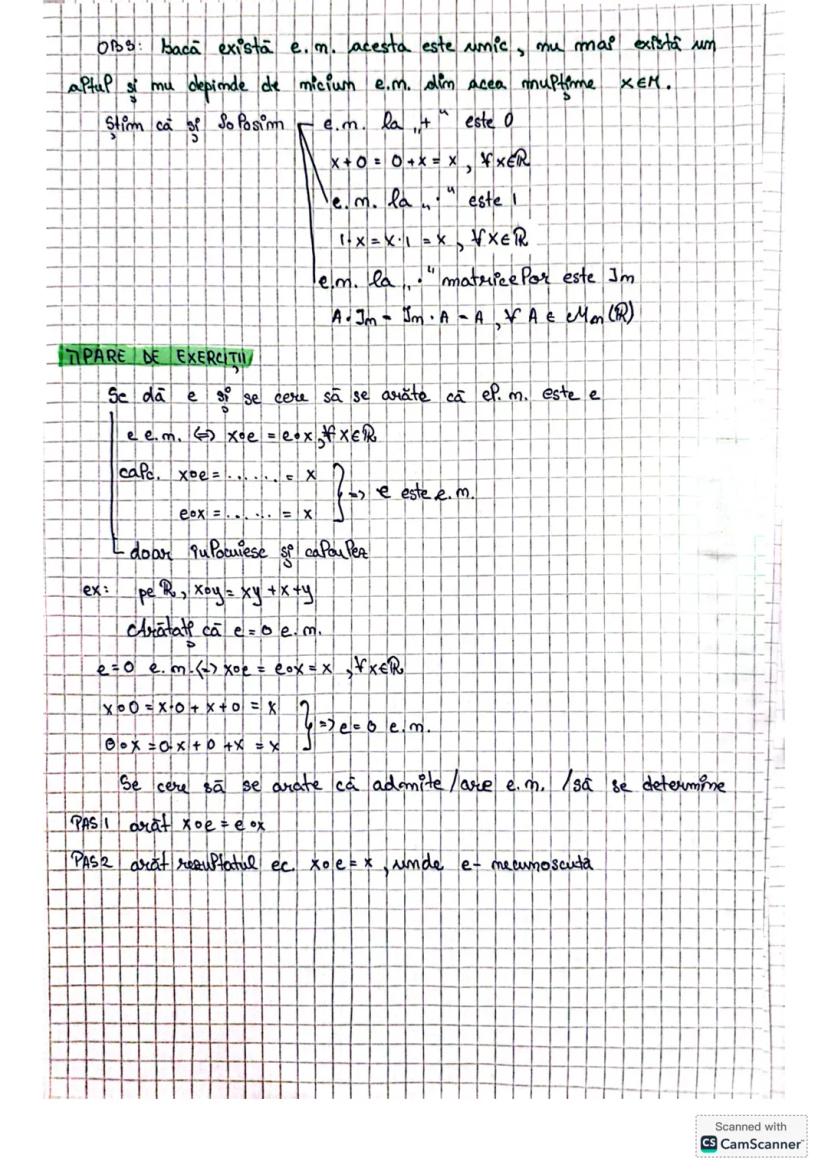 OBS: Dacă există e.m. acesta este unic, nu mai există un
altul și nu depinde de niciun e.m. din acea mulțime x∈M.
Știm că și folosim e.m. la „+" este 0
x+0 = 0+x = x, ∀x∈ℝ
e.m. la „·" este 1
1·x = x·1 = x, ∀x∈ℝ
e.m. la „·" matricelor este In
A·In = In·A = A, ∀ A ∈ Mn(ℝ)
TIPARE DE EXERCIȚII
Se dă e și se cere să se arăte că el. n. este e
e e.m. ⇔ x∘e = e∘x, ∀x∈ℝ
calc. x∘e = ...... = x
e∘x = ...... = x
=> e este e.m.
doar înlocuiesc și calculez
ex: pe ℝ, x∘y = xy+x+y
Arătați că e=0 e.m.
e=0 e.m. (=) x∘e = e∘x = x, ∀x∈ℝ
x∘0 = x·0 + x+0 = x
0∘x = 0·x + 0 + x = x
=> e=0 e.m.
Se cere să se arate că admite/are e.m. /să se determine
PAS 1 arăt x∘e = e∘x
PAS 2 arăt rezultatul ec. x∘e = x, unde e- necunoscută
Scanned with
CS CamScanner